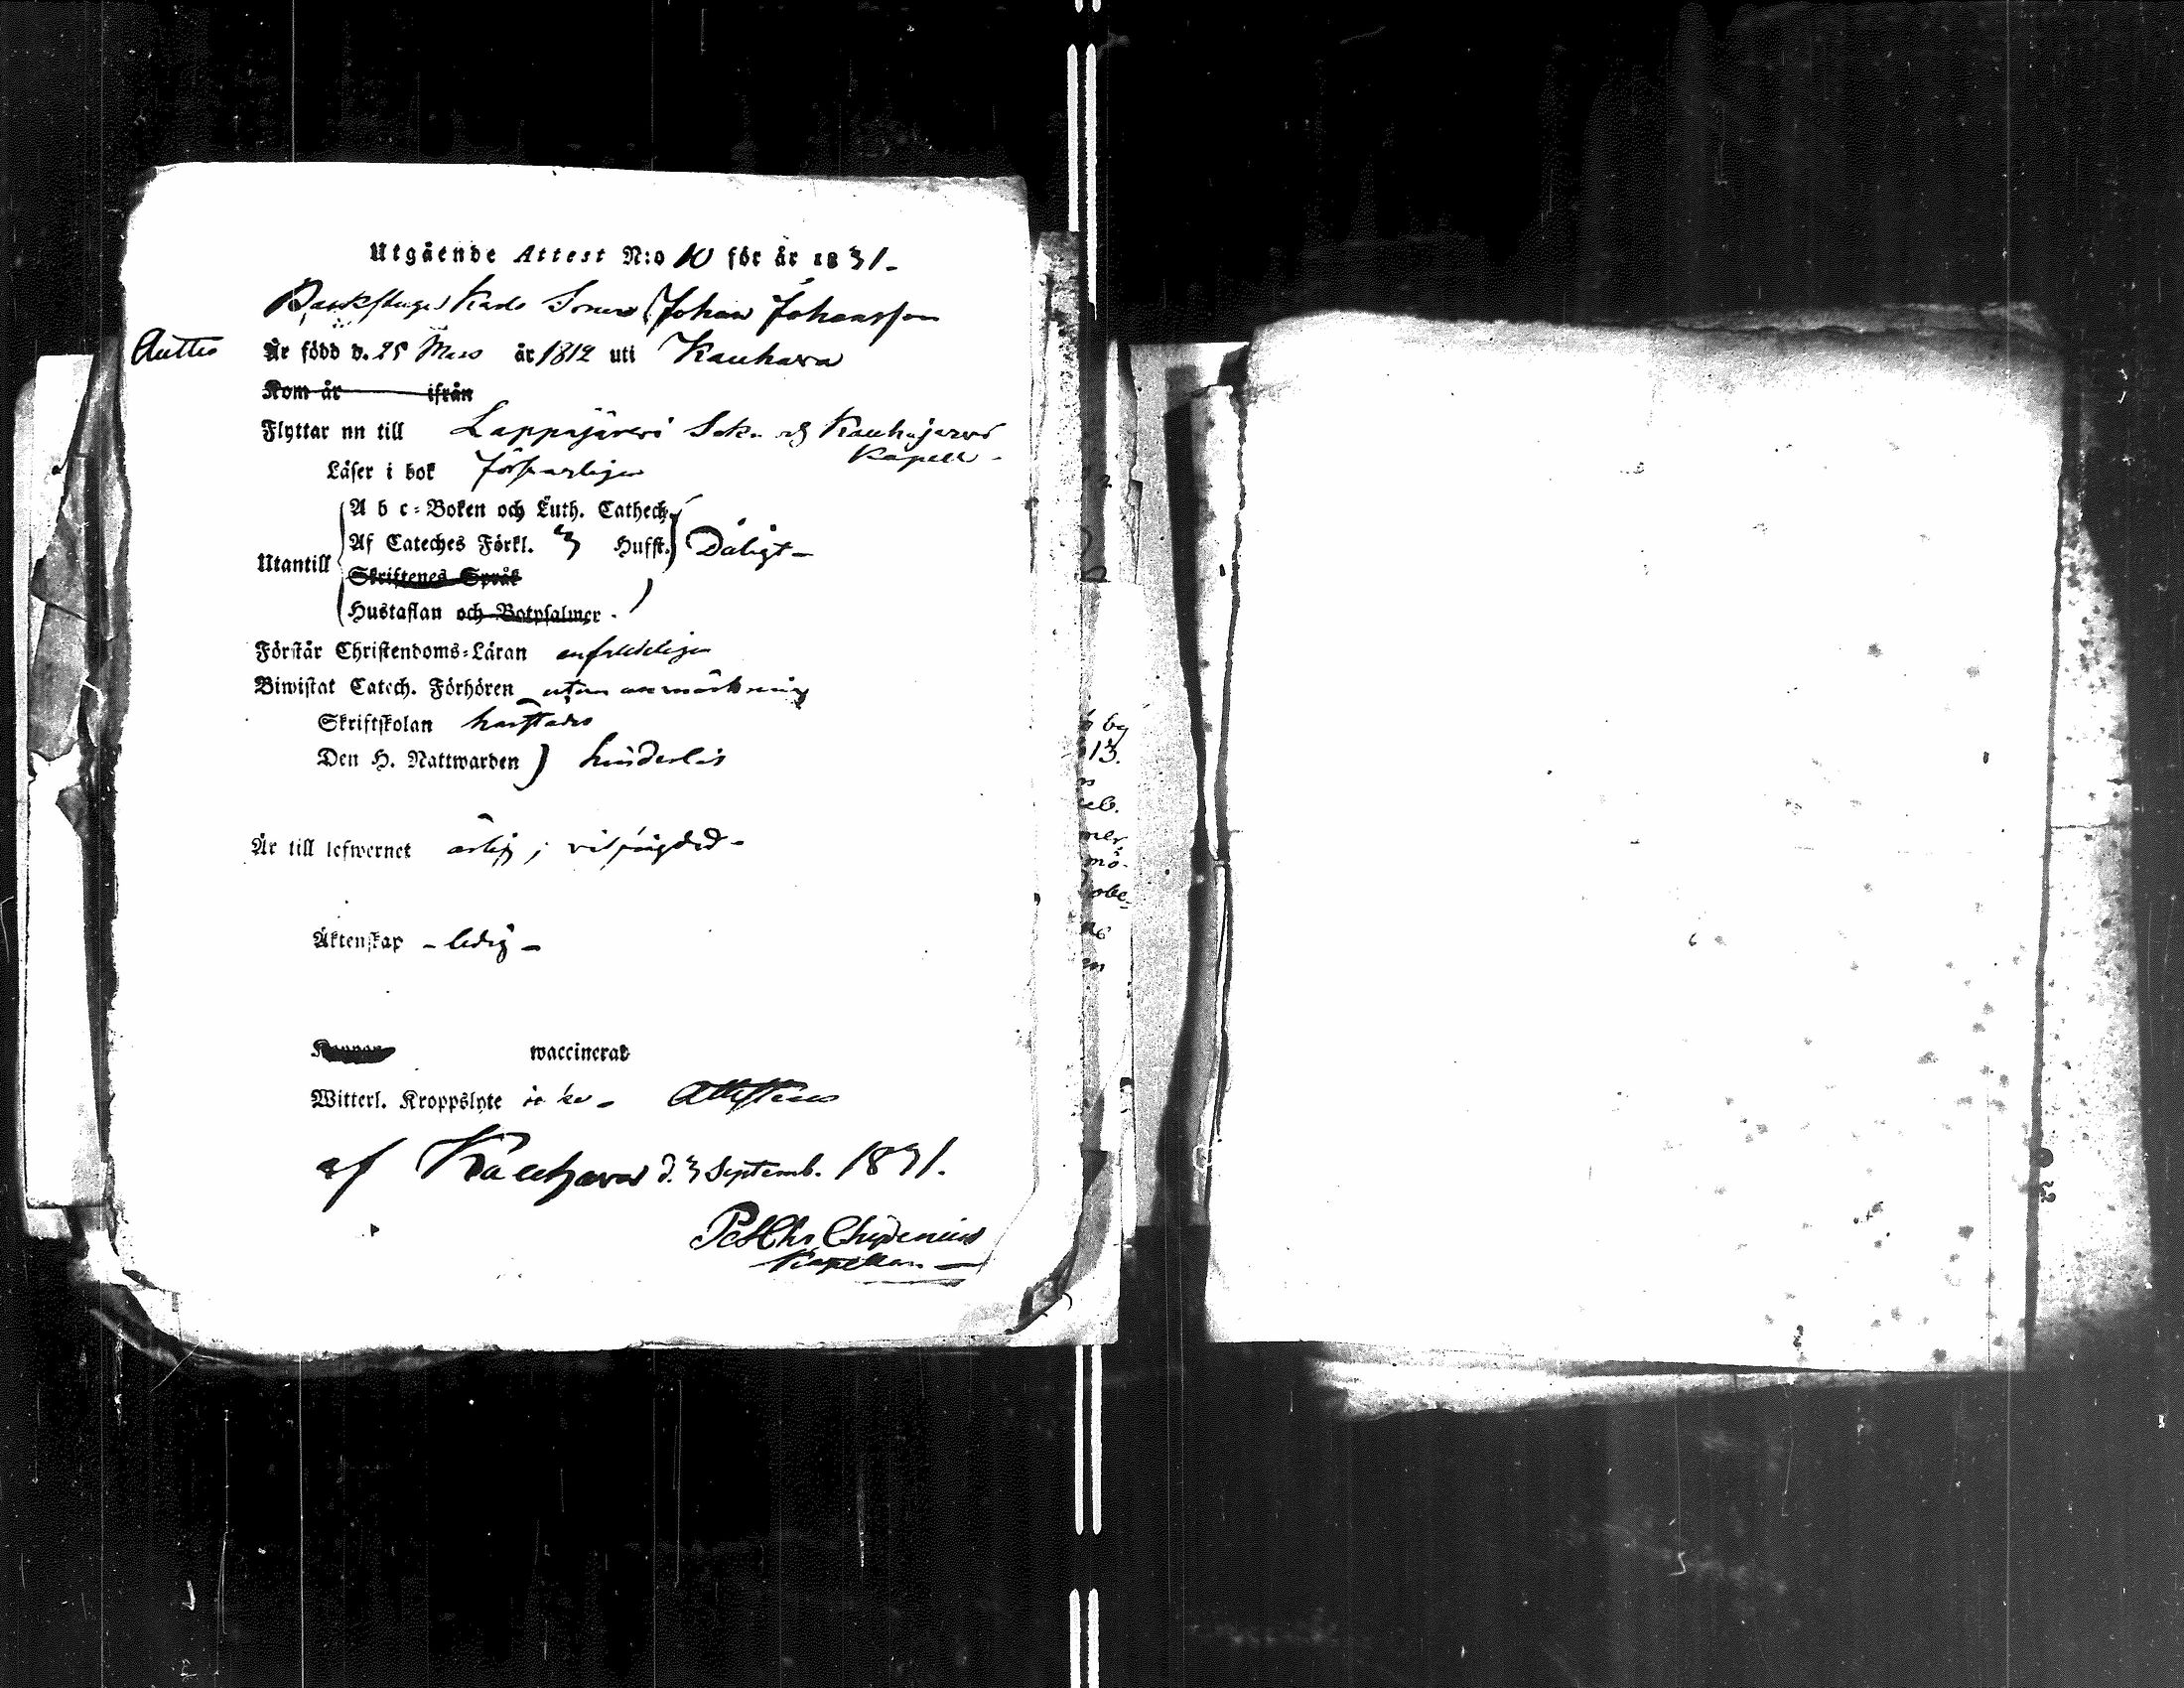 Utgående Attest N:o 10 för år 1831.
Backstugu Karls Sonen Johan Johansson
Anttis
Är född d. 25 Mars år 1812 uti Kauhava
Kom år ifrån
Flyttar nu till Lappajärvi Sokn och Kauhajärvi
Kapell.
Läser i bok försvarligen
A b c-Boken och Luth. Cathech.
Af Cateches Förkl. 3 Hufst. Dåligt
Utantill
Skriftenes Språk
Hustaflan och Botpsalmer.
Förstår Christendoms-Läran enfaldeligen
Biwistat Catech. Förhören utan anmärkning
Skriftskolan
Den H. Nattwarden
Är till lefwernet ärlig;
Äktenskap - ledig -
Koppor waccinerad
Witterl. Kroppslyte icke. Attesteras
af Kauhava d. 3 Septemb. 1831.
Pet Chr. Chydenius
Kapellan
by
13.